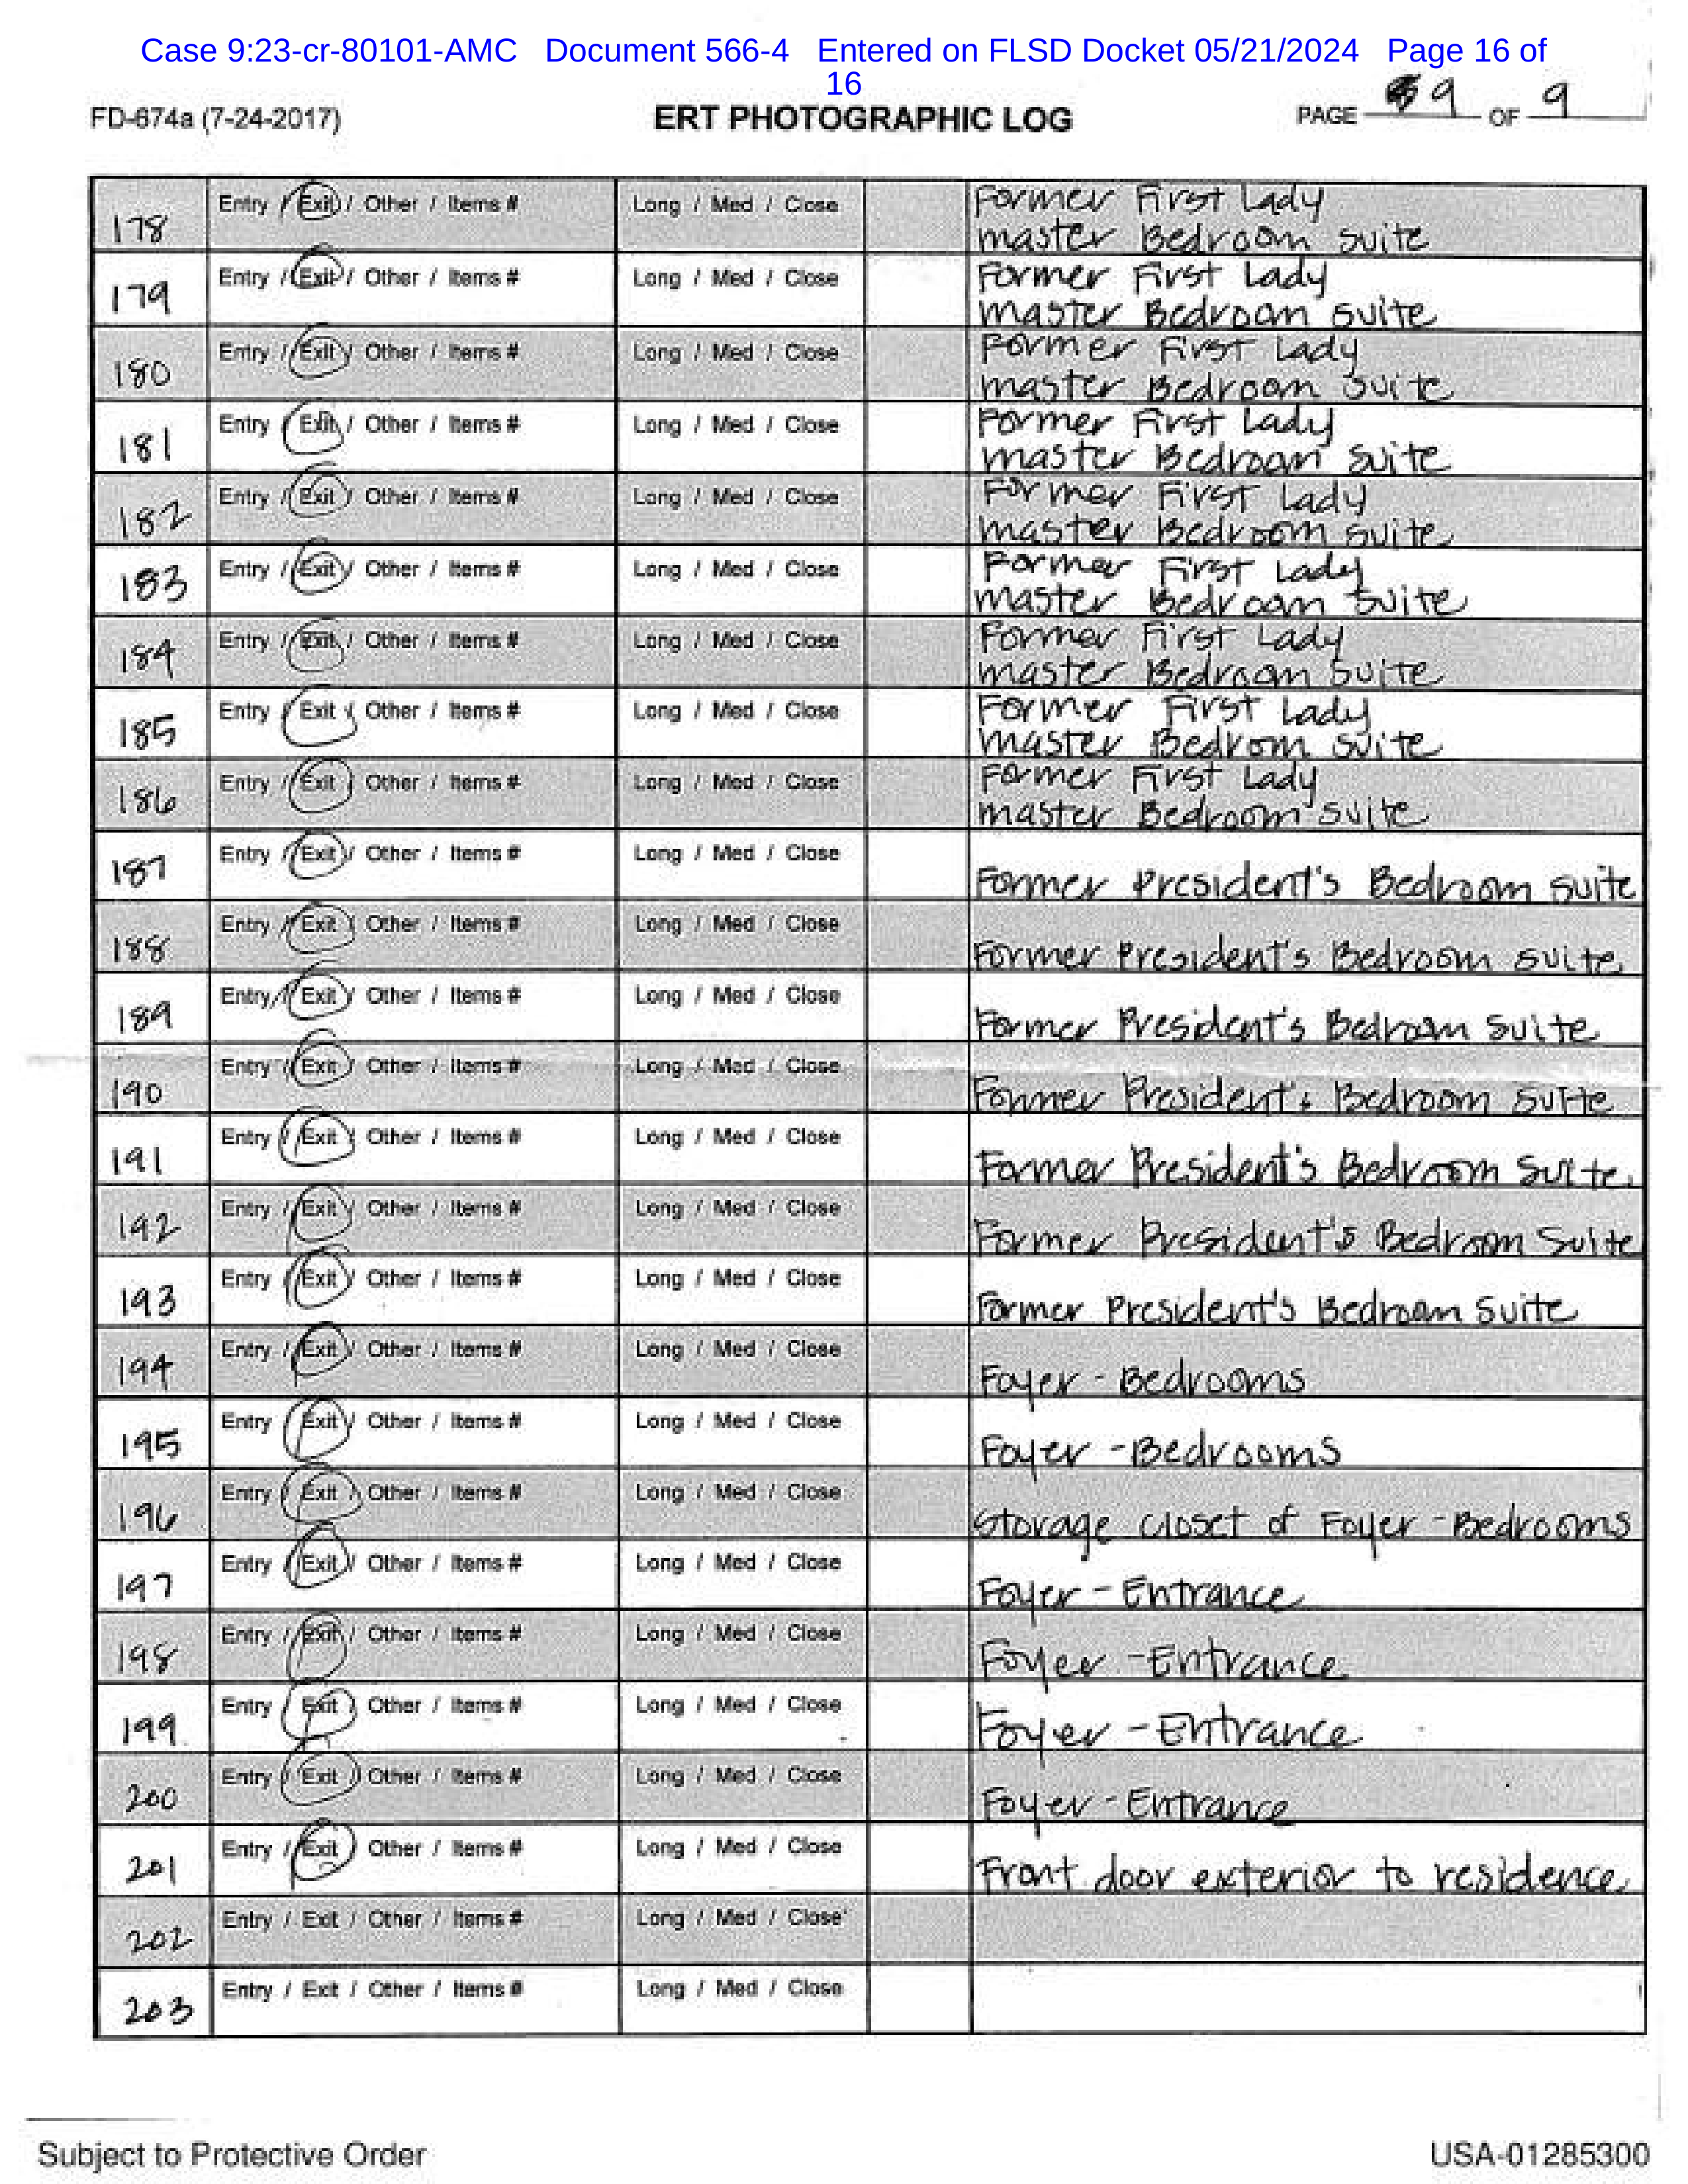 Case 9:23-cr-80101-AMC Document 566-4 Entered on FLSD Docket 05/21/2024 Page 16 of
16
FD-674a (7-24-2017) ERT PHOTOGRAPHIC LOG PAGE 9 OF 9
178 Entry / Exit / Other / Items # Long / Med / Close Former First Lady
master Bedroom suite
179 Entry / Exit / Other / Items # Long / Med / Close Former First Lady
master Bedroom suite
180 Entry / Exit / Other / Items # Long / Med / Close Former First Lady
master Bedroom suite
181 Entry / Exit / Other / Items # Long / Med / Close Former First Lady
master Bedroom suite
182 Entry / Exit / Other / Items # Long / Med / Close Former First Lady
master Bedroom suite
183 Entry / Exit / Other / Items # Long / Med / Close Former First Lady
master Bedroom suite
184 Entry / Exit / Other / Items # Long / Med / Close Former First Lady
master Bedroom suite
185 Entry / Exit / Other / Items # Long / Med / Close Former First Lady
master Bedrom suite
186 Entry / Exit / Other / Items # Long / Med / Close Former First Lady
master Bedroom suite
187 Entry / Exit / Other / Items # Long / Med / Close Former President's Bedroom suite
188 Entry / Exit / Other / Items # Long / Med / Close Former President's Bedroom suite
189 Entry / Exit / Other / Items # Long / Med / Close Former President's Bedroom Suite
190 Entry / Exit / Other / Items # Long / Med / Close Former President's Bedroom Suite
191 Entry / Exit / Other / Items # Long / Med / Close Former President's Bedroom Suite
192 Entry / Exit / Other / Items # Long / Med / Close Former President's Bedroom Suite
193 Entry / Exit / Other / Items # Long / Med / Close Former President's Bedroom Suite
194 Entry / Exit / Other / Items # Long / Med / Close Foyer - Bedrooms
195 Entry / Exit / Other / Items # Long / Med / Close Foyer - Bedrooms
196 Entry / Exit / Other / Items # Long / Med / Close Storage closet of Foyer - Bedrooms
197 Entry / Exit / Other / Items # Long / Med / Close Foyer - Entrance
198 Entry / Exit / Other / Items # Long / Med / Close Foyer - Entrance
199 Entry / Exit / Other / Items # Long / Med / Close Foyer - Entrance
200 Entry / Exit / Other / Items # Long / Med / Close Foyer - Entrance
201 Entry / Exit / Other / Items # Long / Med / Close Front door exterior to residence
202 Entry / Exit / Other / Items # Long / Med / Close
203 Entry / Exit / Other / Items # Long / Med / Close
Subject to Protective Order USA-01285300